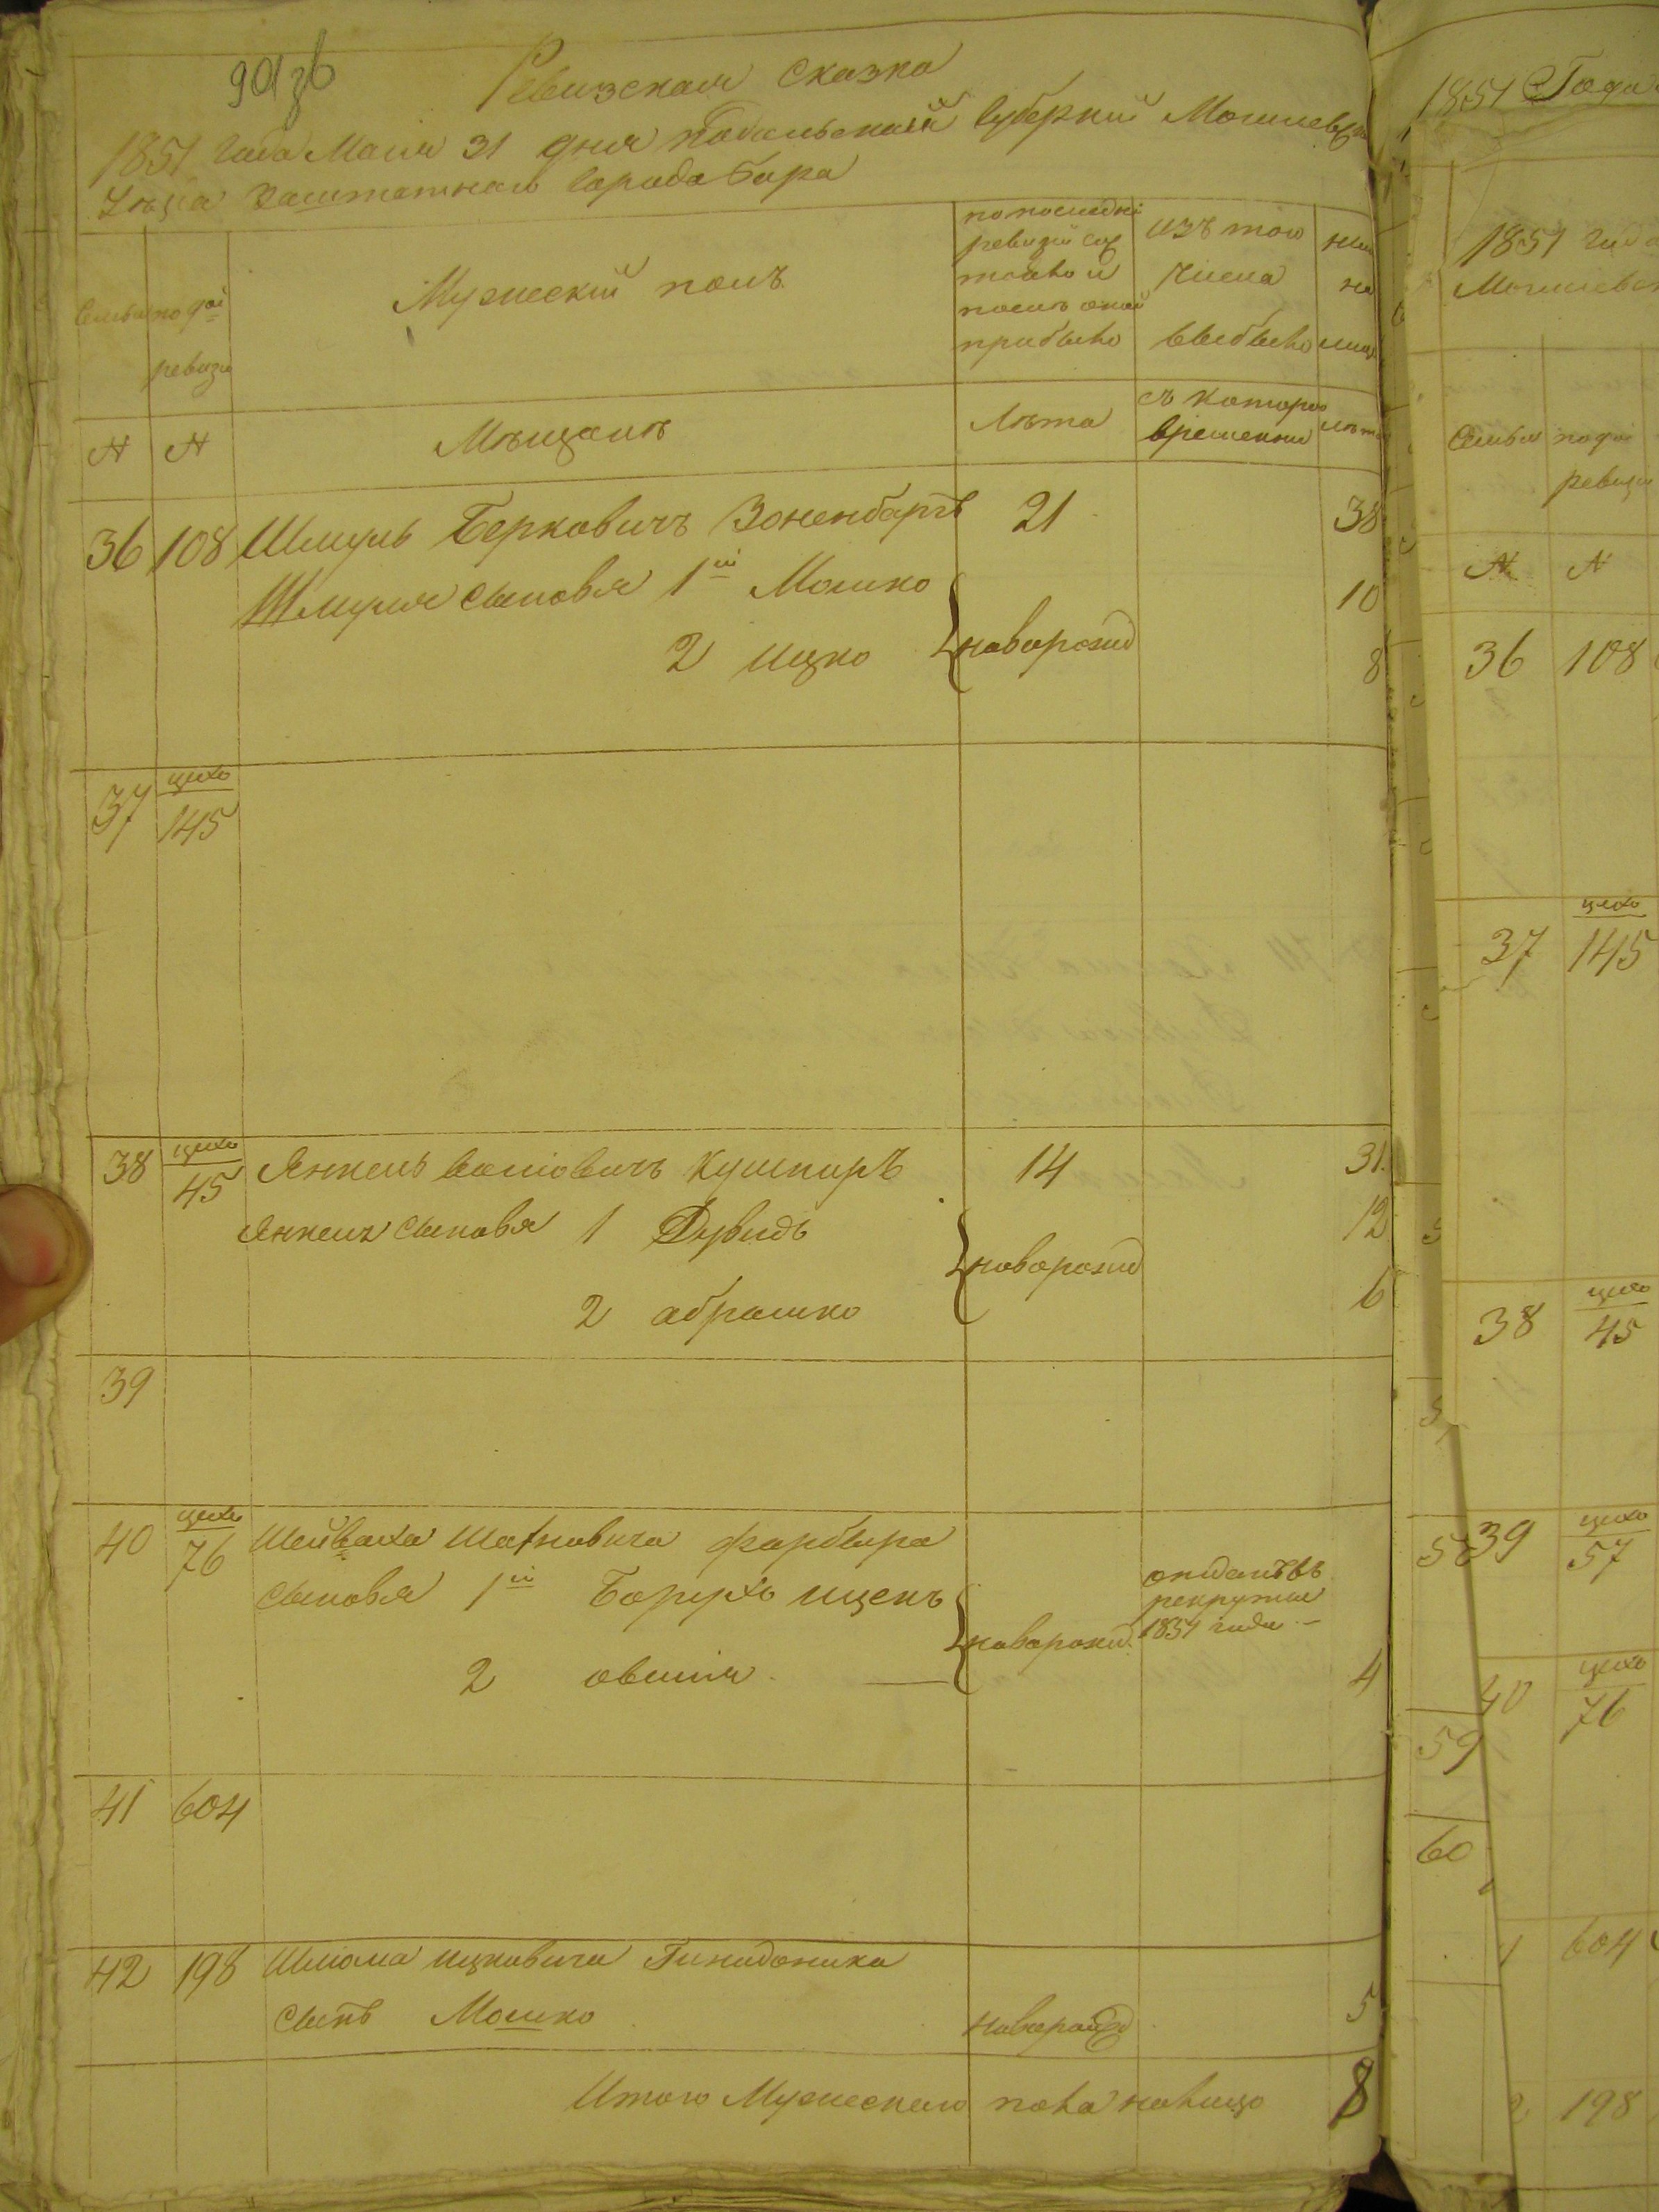 901 зв
Ревизская Сказка
1851 года Маия 31 дня Подольской Губернии Могилевск
Уезда Заштатнаго Города Бара
Семьи по 8ой ревизи
Мужеский полъ
по последнѣ ревизіи сос тояло и послѣ оной прибыло
изъ того числа выбыло
нын на лицо
№ № Мѣщанъ Лѣта съ котораго времени лѣта
36 108 Шмуль Берковичъ Зоненбаргъ 21 38
Шмуля сыновья 1й Мошко 10
2 Ицко новорожд 8
37 цехо 145
38 цехо 45 Янкель Кушниръ 14 31
Янкеля сыновья 1 Дувидъ 12
2 абрашко новорожд 6
39
40 цехо 76 Шейваха Шахновича Фарбера
сыновья 1й Борухъ ицекъ отданъ въ рекруты 1851 года
2 овшия новорожд 4
41 604
42 198 Шлиома ицковича
сынъ Мошко новорожд 5
Итого Мужескаго пола налицо 8
1851 Года
1851 года
Могилевск
Семьи по 8ой ревизи
№ №
36 108
37 цехо 145
38 цехо 45
58 39 цехо 57
40 цехо 76
59
60
604
198